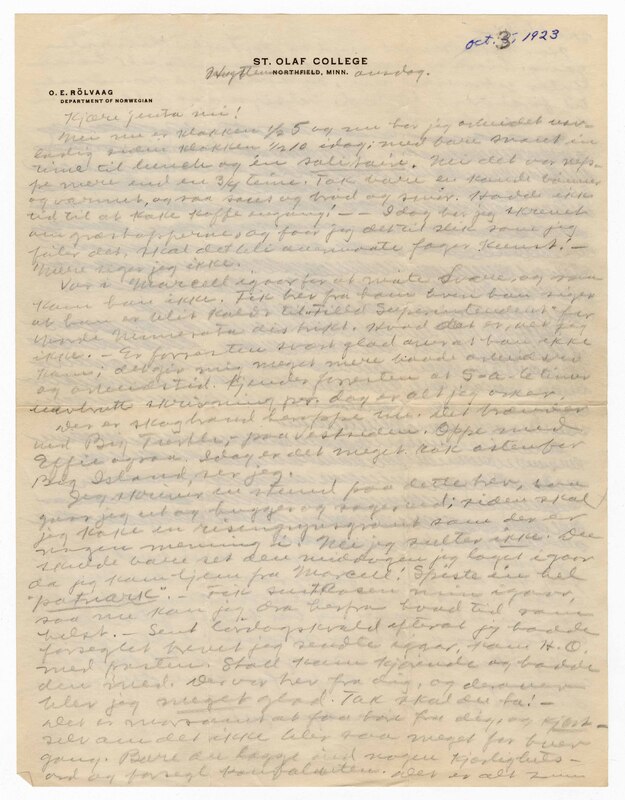 Oct. 3, 1923
ST. OLAF COLLEGE
NORTHFIELD, MINN.
Hytten onsdag.
O. E. RÖLVAAG
DEPARTMENT OF NORWEGIAN
Kjære jenta mi!
Nei nu er klokken 1/2 5 og nu har jeg arbeidet
siden klokken 1/2 10 idag; med bare snaut en
time til lunch og én solitaire. Nei det var
mere end en 3/4 time. Tok bare en kande bønner
og varmet, og saa og brød og smør. Hadde ikke
tid til at koke kaffe engang! — — Idag har jeg skrevet
om græshopperne, og faar jeg det til slik som jeg
føler det, skal det
siger jeg ikke.
Var i Marcell igaar for at møte Svane, og saa
kom han ikke. Fik brev fra ham hvori han siger
at han er blit kaldt til "Field Superintendent" for
Nordre Minnesota distrikt. Hvad det er, vet jeg
ikke. — Er forresten svært glad over at han ikke
kom; det gir mig meget mere baade arbeidsro
og arbeidstid. Kjender forresten at 5 a 6 timer
skrivning per dag er alt jeg orker.
Der er skogbrand heroppe nu. Det brænder
ved Big Turtle, paa vestsiden. Oppe med
Effie ogsaa. Idag er det meget røk østenfor
Big Island, ser jeg.
Jeg skriver en stund paa dette brev, saa
gaar jeg ut og hugger og sager ved; siden skal
jeg koke en risengrynsgrøt som der er
nogen mening i. Nei jeg sulter ikke. Du
skulde bare set den middagen jeg laget igaar
da jeg kom hjem fra Marcell! Spiste én hel
"patriark". — Fik min igaar,
saa nu kan jeg dra herfra hvad tid som
helst. — Sent lørdagskveld efterat jeg hadde
forseglet brevet jeg sendte igaar, kom H. O.
med posten. Stod kom kjørende og hadde
den med. Der var brev fra dig, og derover
blev jeg meget glad. Tak skal du ha! —
Det er morsomt at faa brev fra dig, og
selv om det ikke blir saa meget for hver
gang. Bare du lægger ind nogen kjærligheds-
ord og forsegl konvolutten. Det er alt som